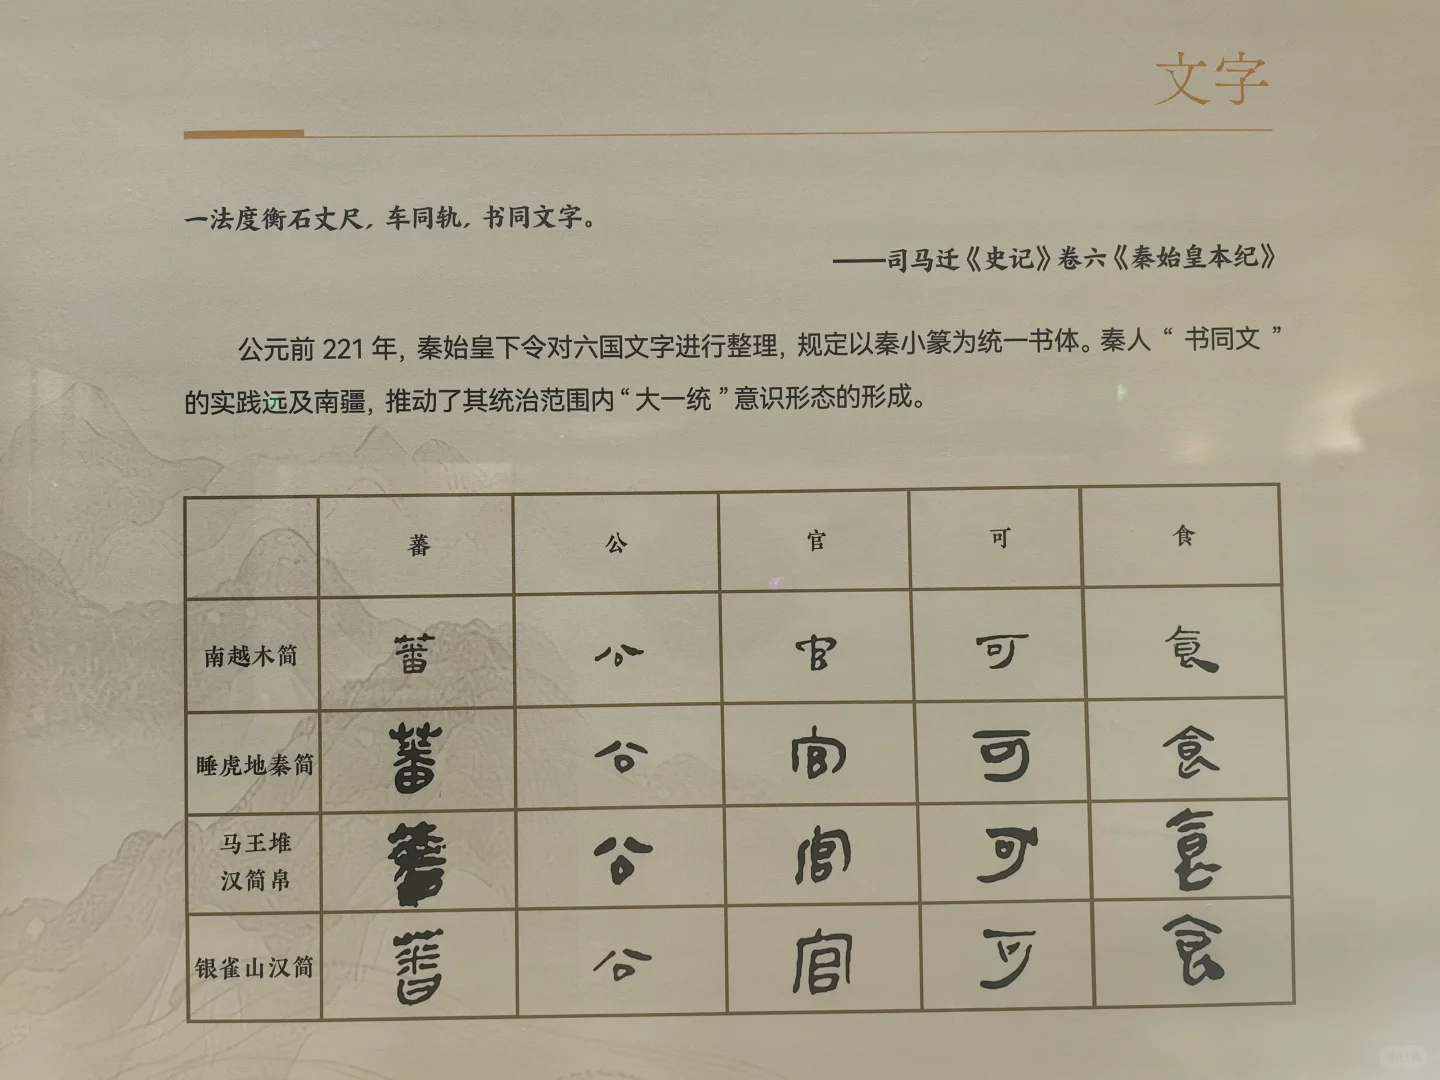 文字
一法度衡石丈尺，车同轨，书同文字。
——司马迁《史记》卷六《秦始皇本纪》
公元前 221 年，秦始皇下令对六国文字进行整理，规定以秦小篆为统一书体。秦人“书同文”
的实践远及南疆，推动了其统治范围内“大一统”意识形态的形成。
蕃 公 官 可 食
南越木简 蕃 公 官 可 食
睡虎地秦简 蕃 公 官 可 食
马王堆
汉简帛 蕃 公 官 可 食
银雀山汉简 蕃 公 官 可 食